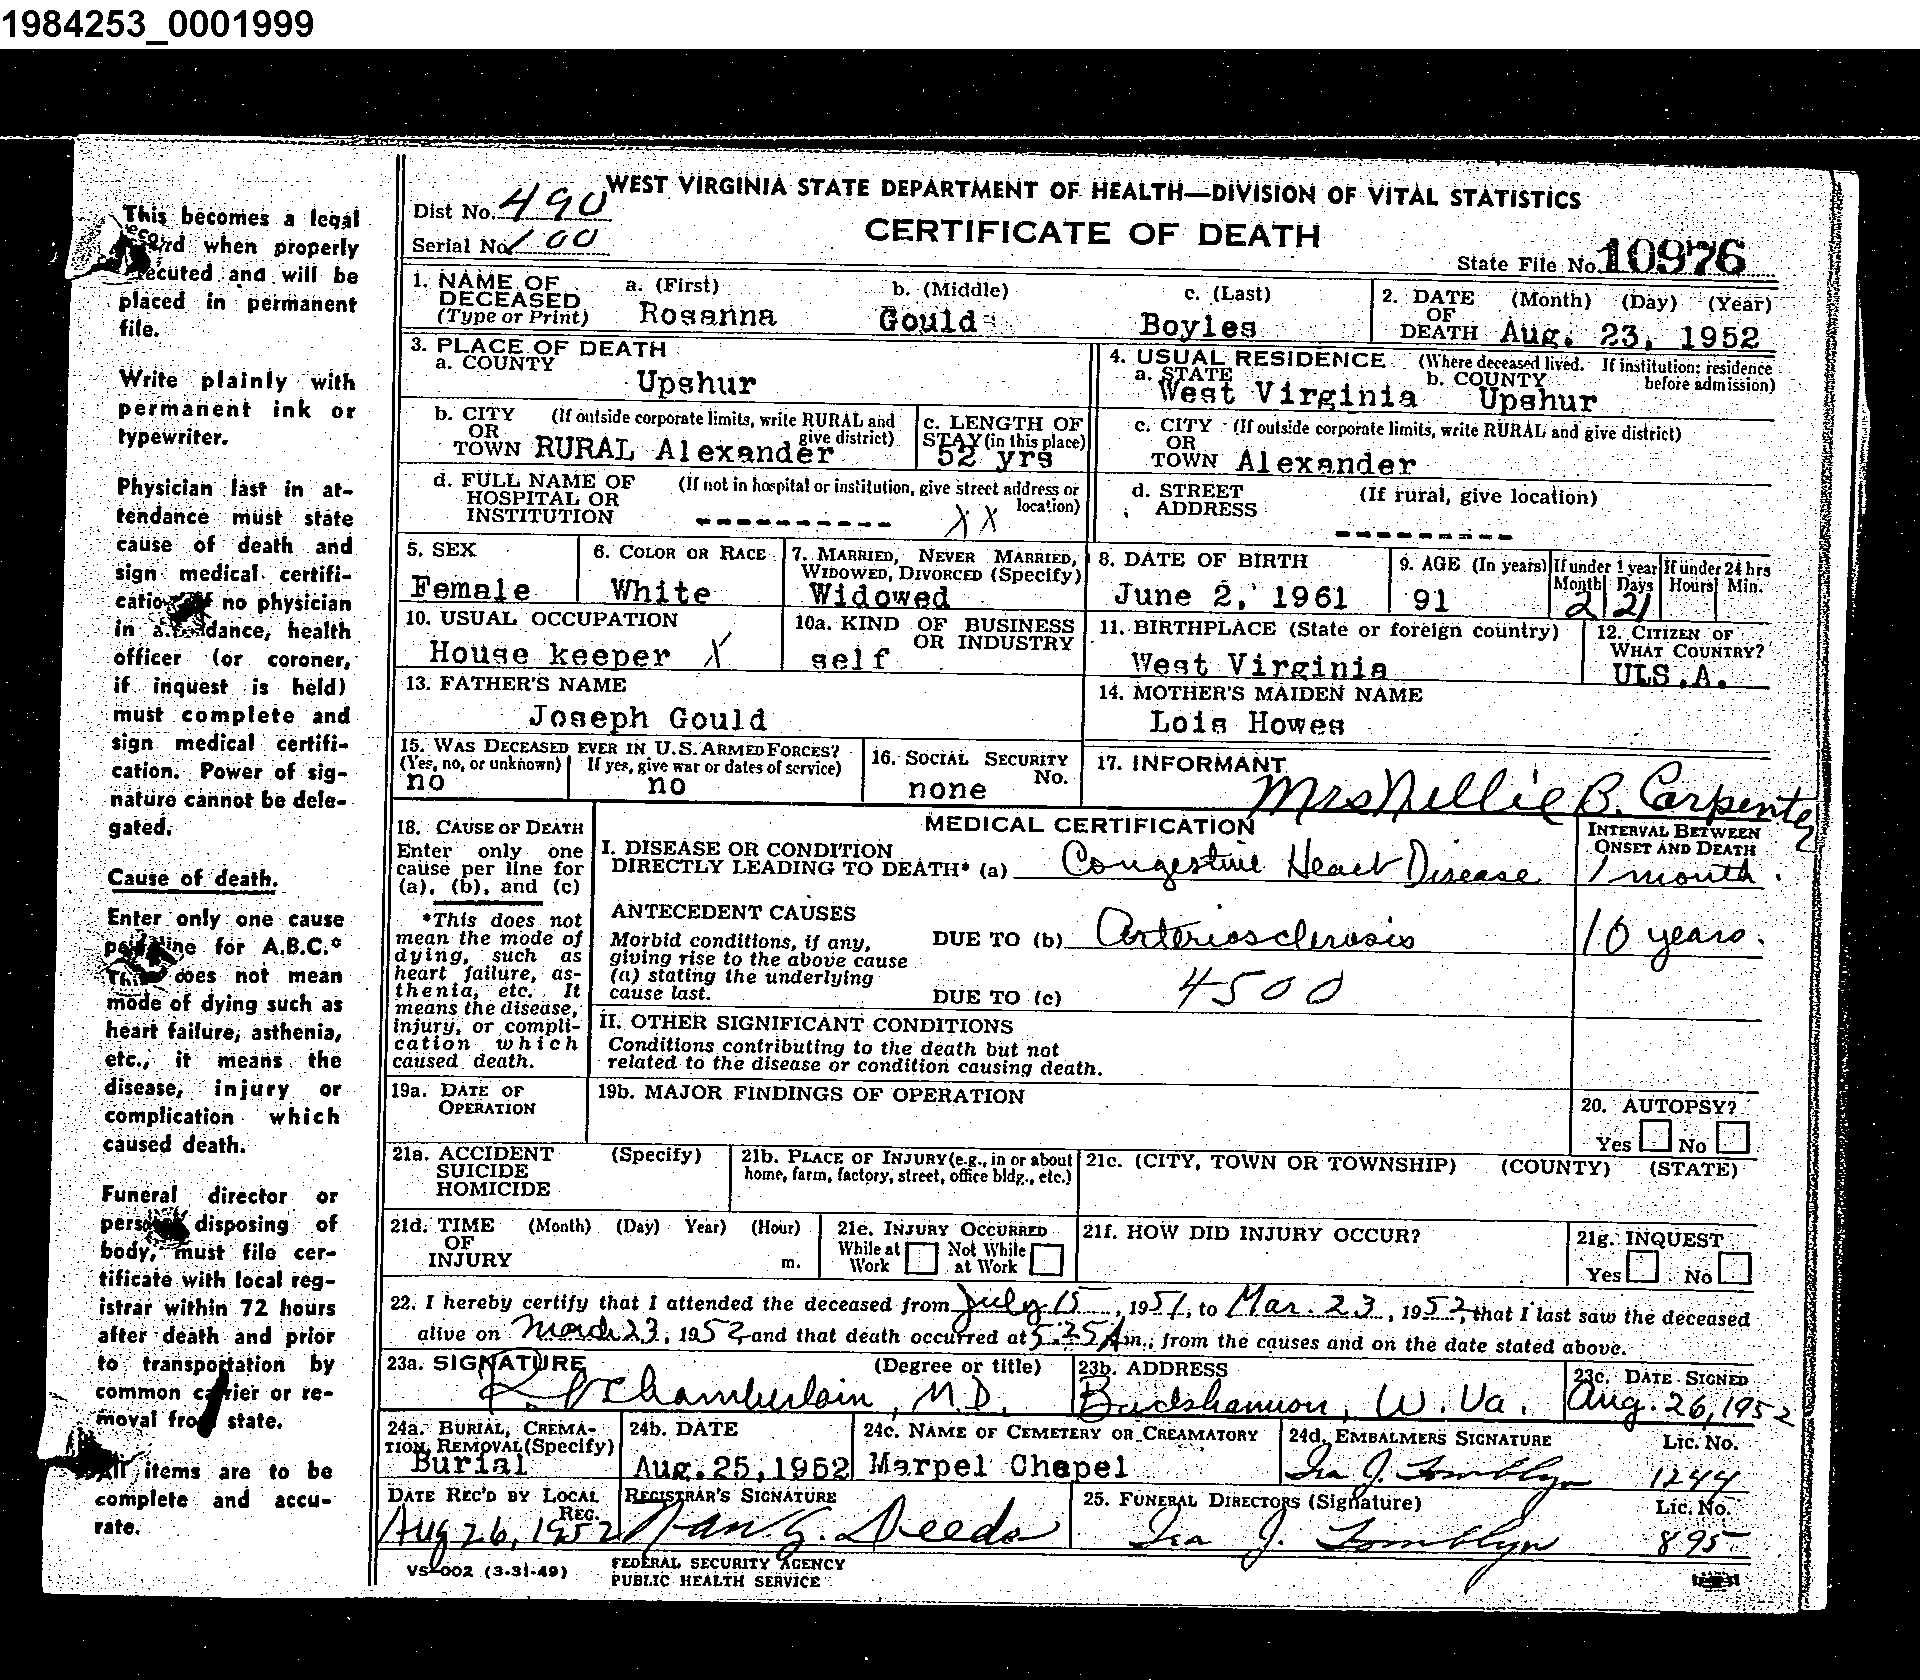 1984253_0001999
This becomes a legal
record when properly
executed and will be
placed in permanent
file.
Write plainly with
permanent ink or
typewriter.
Physician last in at-
tendance must state
cause of death and
sign medical certifi-
cation. If no physician
in attendance, health
officer (or coroner,
if inquest is held)
must complete and
sign medical certifi-
cation. Power of sig-
nature cannot be dele-
gated.
Cause of death.
Enter only one cause
per line for A.B.C.*
This does not mean
mode of dying such as
heart failure, asthenia,
etc., it means the
disease, injury or
complication which
caused death.
Funeral director or
person disposing of
body, must file cer-
tificate with local reg-
istrar within 72 hours
after death and prior
to transportation by
common carrier or re-
moval from state.
All items are to be
complete and accu-
rate.
WEST VIRGINIA STATE DEPARTMENT OF HEALTH—DIVISION OF VITAL STATISTICS
Dist No. 490
CERTIFICATE OF DEATH
Serial No. 100
State File No. 10976
1. NAME OF DECEASED (Type or Print) a. (First) Rosanna b. (Middle) Gould c. (Last) Boyles
2. DATE OF DEATH (Month) (Day) (Year) Aug. 23, 1952
3. PLACE OF DEATH
a. COUNTY Upshur
4. USUAL RESIDENCE (Where deceased lived. If institution: residence before admission)
a. STATE West Virginia b. COUNTY Upshur
b. CITY OR TOWN (If outside corporate limits, write RURAL and give district) RURAL Alexander
c. LENGTH OF STAY (in this place) 52 yrs
c. CITY OR TOWN (If outside corporate limits, write RURAL and give district) Alexander
d. FULL NAME OF HOSPITAL OR INSTITUTION (If not in hospital or institution, give street address or location) ---------- XX
d. STREET ADDRESS (If rural, give location) ---------
5. SEX Female
6. COLOR OR RACE White
7. MARRIED, NEVER MARRIED, WIDOWED, DIVORCED (Specify) Widowed
8. DATE OF BIRTH June 2, 1961
9. AGE (In years) 91 If under 1 year Month 2 Days 21 If under 24 hrs Hours Min.
10. USUAL OCCUPATION House keeper X
10a. KIND OF BUSINESS OR INDUSTRY self
11. BIRTHPLACE (State or foreign country) West Virginia
12. CITIZEN OF WHAT COUNTRY? ULS.A.
13. FATHER'S NAME Joseph Gould
14. MOTHER'S MAIDEN NAME Lois Howes
15. WAS DECEASED EVER IN U.S. ARMED FORCES?
(Yes, no, or unknown) no If yes, give war or dates of service) no
16. SOCIAL SECURITY No. none
17. INFORMANT Mrs Nellie B. Carpenter
18. CAUSE OF DEATH
Enter only one
cause per line for
(a), (b), and (c)
*This does not
mean the mode of
dying, such as
heart failure, as-
thenia, etc. It
means the disease,
injury, or compli-
cation which
caused death.
MEDICAL CERTIFICATION
INTERVAL BETWEEN ONSET AND DEATH
I. DISEASE OR CONDITION
DIRECTLY LEADING TO DEATH* (a) Congestive Heart Disease 1 month.
ANTECEDENT CAUSES
Morbid conditions, if any,
giving rise to the above cause
(a) stating the underlying
cause last.
DUE TO (b) Arteriosclerosis 10 years.
DUE TO (c) 4500
II. OTHER SIGNIFICANT CONDITIONS
Conditions contributing to the death but not
related to the disease or condition causing death.
19a. DATE OF OPERATION
19b. MAJOR FINDINGS OF OPERATION
20. AUTOPSY?
Yes No
21a. ACCIDENT SUICIDE HOMICIDE (Specify)
21b. PLACE OF INJURY (e.g., in or about home, farm, factory, street, office bldg., etc.)
21c. (CITY, TOWN OR TOWNSHIP) (COUNTY) (STATE)
21d. TIME OF INJURY (Month) (Day) Year) (Hour) m.
21e. INJURY OCCURRED
While at Work Not While at Work
21f. HOW DID INJURY OCCUR?
21g. INQUEST
Yes No
22. I hereby certify that I attended the deceased from July 15, 1951, to Mar. 23, 1952, that I last saw the deceased
alive on March 23, 1952 and that death occurred at 5:25 A m., from the causes and on the date stated above.
23a. SIGNATURE (Degree or title) Chamberlain, M.D.
23b. ADDRESS Buckhannon, W. Va.
23c. DATE SIGNED Aug. 26, 1952
24a. BURIAL, CREMATION, REMOVAL (Specify) Burial
24b. DATE Aug. 25, 1952
24c. NAME OF CEMETERY OR CREAMATORY Marpel Chapel
24d. EMBALMERS SIGNATURE Lic. No. Ira J. Tomblyn 1244
DATE REC'D BY LOCAL REG. Aug 26, 1952
REGISTRAR'S SIGNATURE Nan G. Deeds
25. FUNERAL DIRECTORS (Signature) Lic. No. Ira J. Tomblyn 895
VS-002 (3-31-49)
FEDERAL SECURITY AGENCY
PUBLIC HEALTH SERVICE